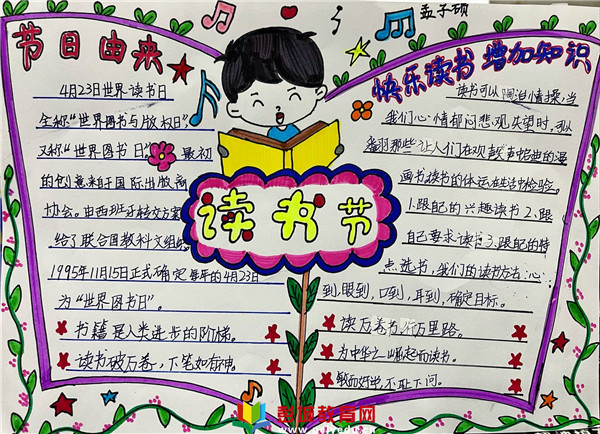 孟子硕
节日由央
4月23日世界读书日
全称“世界图书与版权日”
又称“世界图书日”最初
的创意来自于国际出版商
协会。由西班牙转交方案
给了联合国教科文组织
1995年11月15日正式确定每年的4月23日
为“世界图书日”。
书籍是人类进步的阶梯。
读书破万卷，下笔如有神。
读书节
快乐读书 增加知识
读书可以陶冶情操,当
我们心情郁闷悲观失望时,可以
看那些让人们在观
画书读书的体
1.跟自己的兴趣读书 2.跟
自己要求读书 3.跟自己的特
点选书，我们的读书方法：心
到,眼到,口到,耳到,确定目标。
读万卷书,行万里路。
为中华之崛起而读书。
敏而好学,不耻下问。
彭城教育网